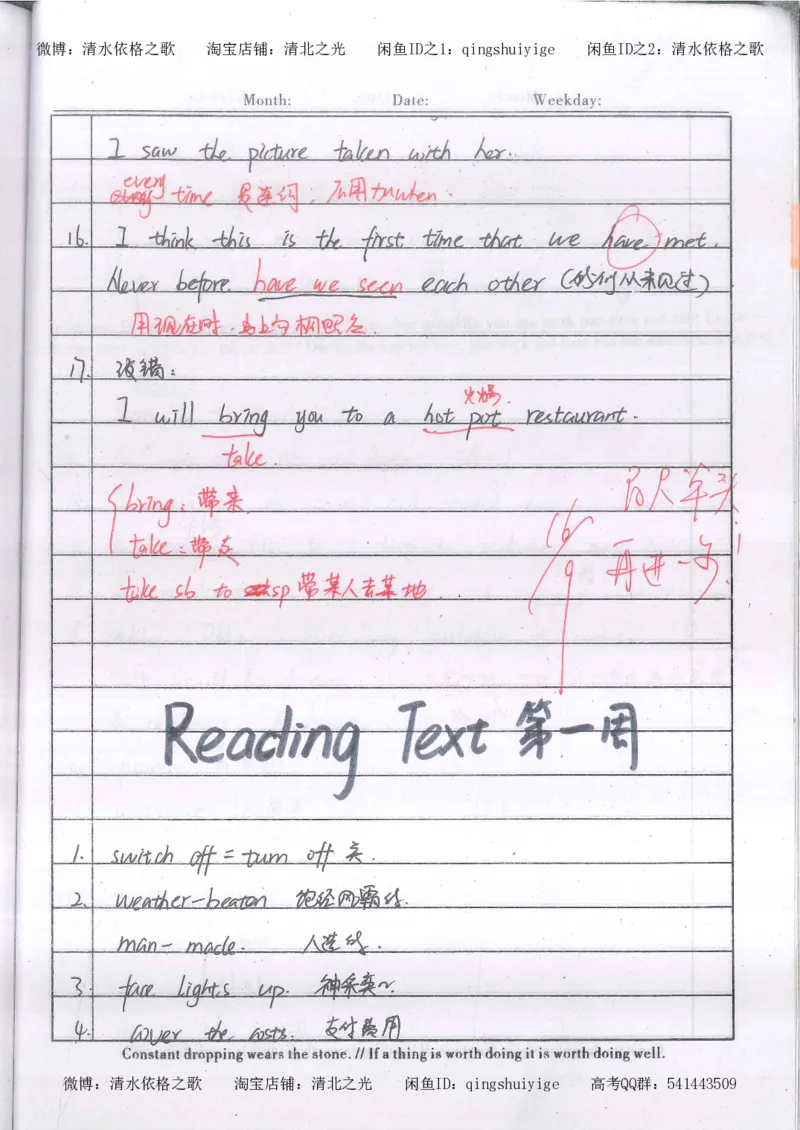 微博：清水依格之歌 淘宝店铺：清北之光 闲鱼ID之1：qingshuiyige 闲鱼ID之2：清水依格之歌
Month: Date: Weekday:
I saw the picture taken with her.
every
time 是连词，不用加when.
16. I think this is the first time that we have met.
Never before have we seen each other (我们从未见过)
用现在时，与上句相照应
17. 没错：
火锅.
I will bring you to a hot pot restaurant.
take.
{ bring: 带来
take: 带去
take sb to sp 带某人去某地
百尺竿头
16/9 再进一步！
Reading Text 第一周
1. switch off = turn off 关.
2. weather-beaton 饱经风霜的.
man-made. 人造的.
3. face lights up. 神采奕~.
4. cover the costs. 支付费用
Constant dropping wears the stone. // If a thing is worth doing it is worth doing well.
微博：清水依格之歌 淘宝店铺：清北之光 闲鱼ID：qingshuiyige 高考QQ群：541443509